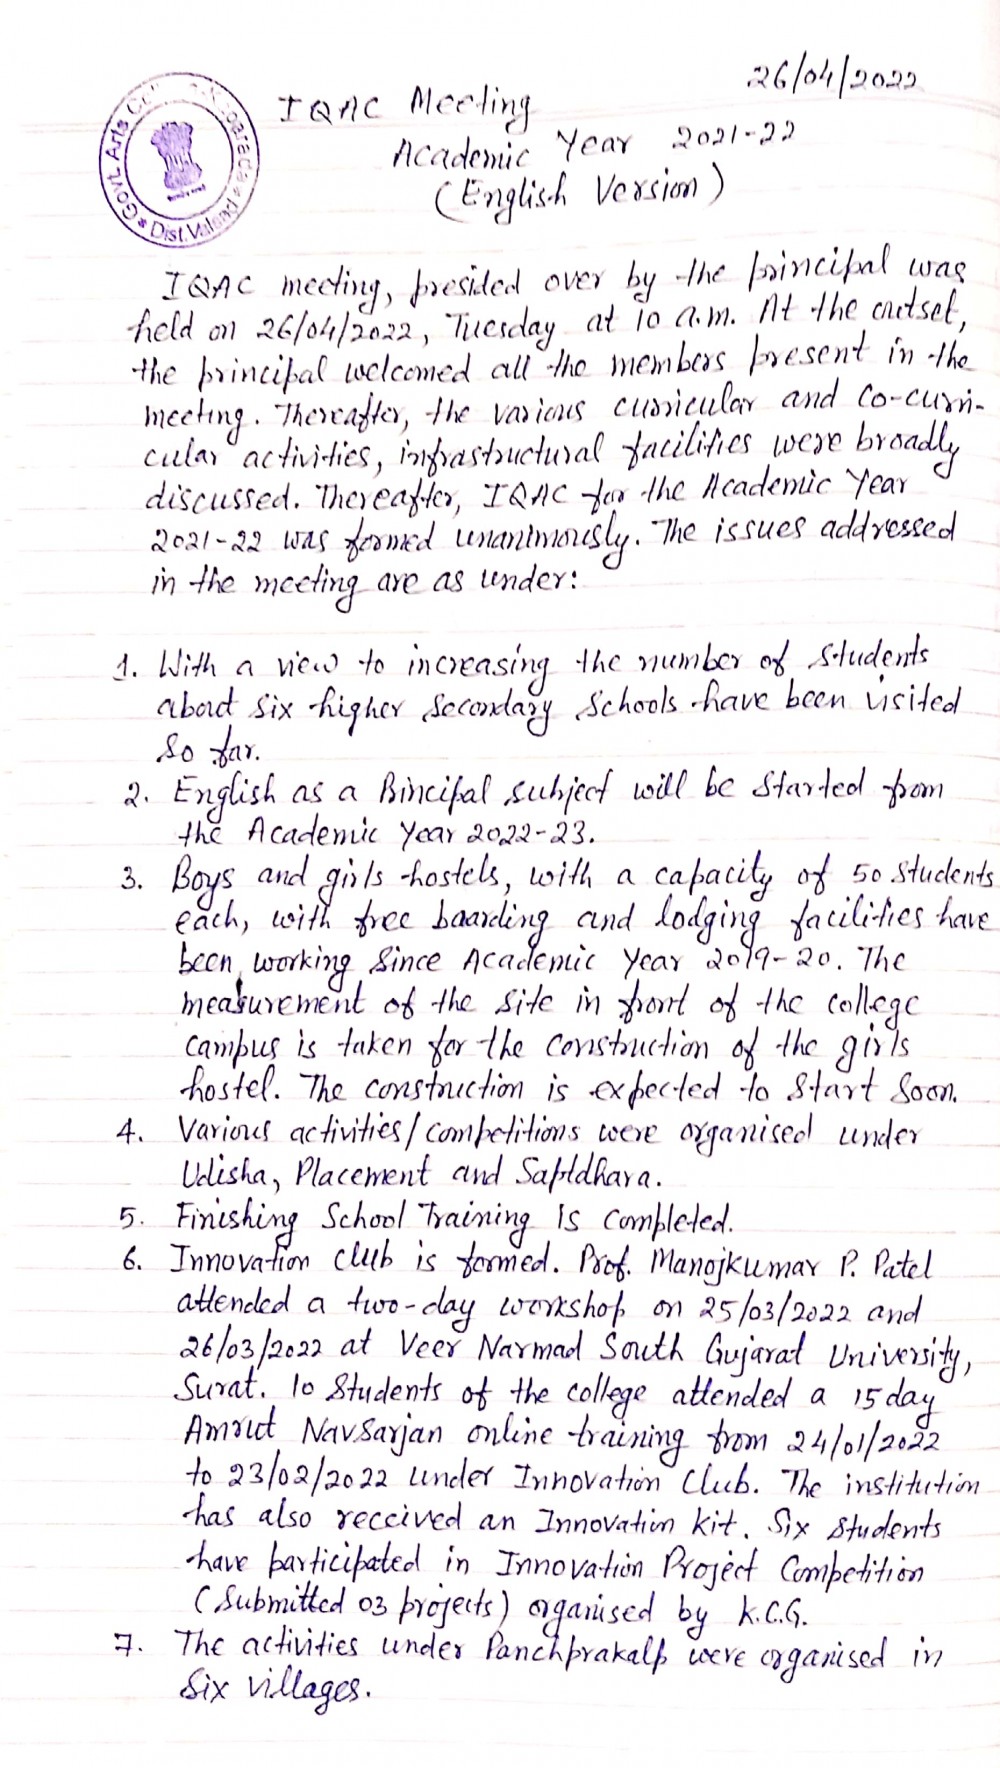 26/04/2022
IQAC Meeting
Academic Year 2021-22
(English Version)
Govt. Arts
Dist. Valsad
IQAC meeting, presided over by the principal was
held on 26/04/2022, Tuesday at 10 a.m. At the outset,
the principal welcomed all the members present in the
meeting. Thereafter, the various curricular and co-curri-
cular activities, infrastructural facilities were broadly
discussed. Thereafter, IQAC for the Academic Year
2021-22 was formed unanimously. The issues addressed
in the meeting are as under:
1. With a view to increasing the number of students
about six higher secondary schools have been visited
so far.
2. English as a Principal subject will be started from
the Academic Year 2022-23.
3. Boys and girls hostels, with a capacity of 50 students
each, with free boarding and lodging facilities have
been working since Academic Year 2019-20. The
measurement of the site in front of the college
campus is taken for the construction of the girls
hostel. The construction is expected to start soon.
4. Various activities/competitions were organised under
Udisha, Placement and Saptdhara.
5. Finishing School Training is completed.
6. Innovation club is formed. Prof. Manojkumar P. Patel
attended a two-day workshop on 25/03/2022 and
26/03/2022 at Veer Narmad South Gujarat University,
Surat. 10 students of the college attended a 15 day
Amrut Navsarjan online training from 24/01/2022
to 23/02/2022 under Innovation Club. The institution
has also received an Innovation kit. Six students
have participated in Innovation Project Competition
(submitted 03 projects) organised by K.C.G.
7. The activities under Panchprakalp were organised in
six villages.